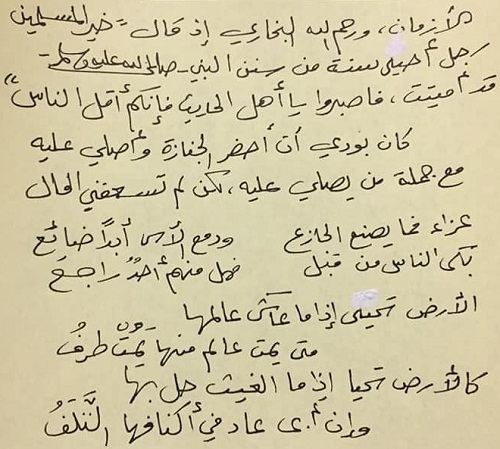 الأزمان، ورحم الله البخاري إذ قال "خير المسلمين
رجل أحيى سنة من سنن النبي - صلى الله عليه وسلم -
قد أميتت، فاصبروا يا أهل الحديث فإنكم أقل الناس"
كان بودي أن أحضر الجنازة وأصلي عليه
مع جملة من يصلي عليه، لكن لم تسعفني الحال
عزاء فما يصنع الجازع ودمع الأسى أبداً ضائع
بكى الناس من قبل فهل منهم أحدٌ راجع
الأرض تحيى إذا ما عاش عالمها
متى يمت عالم منها يَمُتْ طرفُ
كالأرض تحيا إذا ما الغيث حل بها
وإن أبى عاد في أكنافها التَّلَفُ